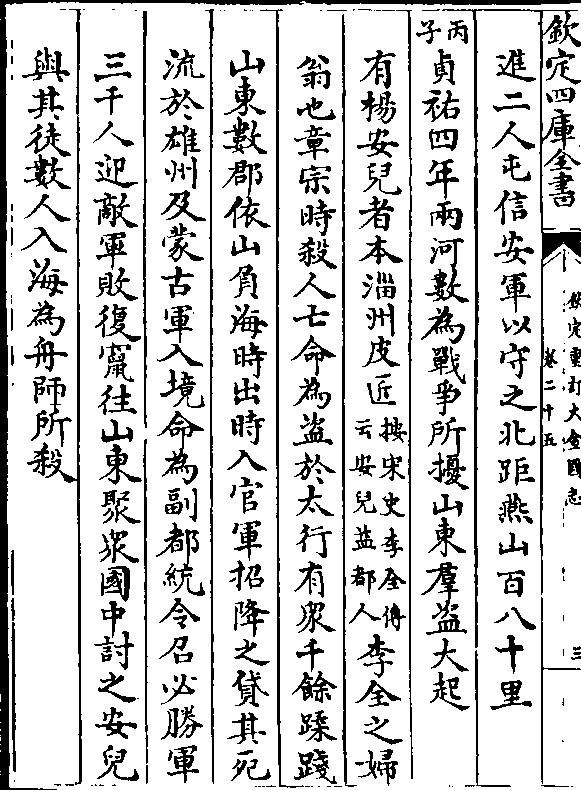 欽定四庫全書
欽定重訂大金國志
卷二十五
三
進二人屯信安軍以守之北距燕山百八十里
丙子貞祐四年兩河數為戰爭所擾山東羣盜大起
有楊安兒者本淄州皮匠按宋史李全傳云安兒益都人李全之婦
翁也章宗時殺人亡命為盜於太行有衆千餘蹂踐
山東數郡依山負海時出時入官軍招降之貸其死
流於雄州及蒙古軍入境命為副都統令召必勝軍
三千人迎敵軍敗復竄往山東聚衆國中討之安兒
與其徒數人入海為舟師所殺